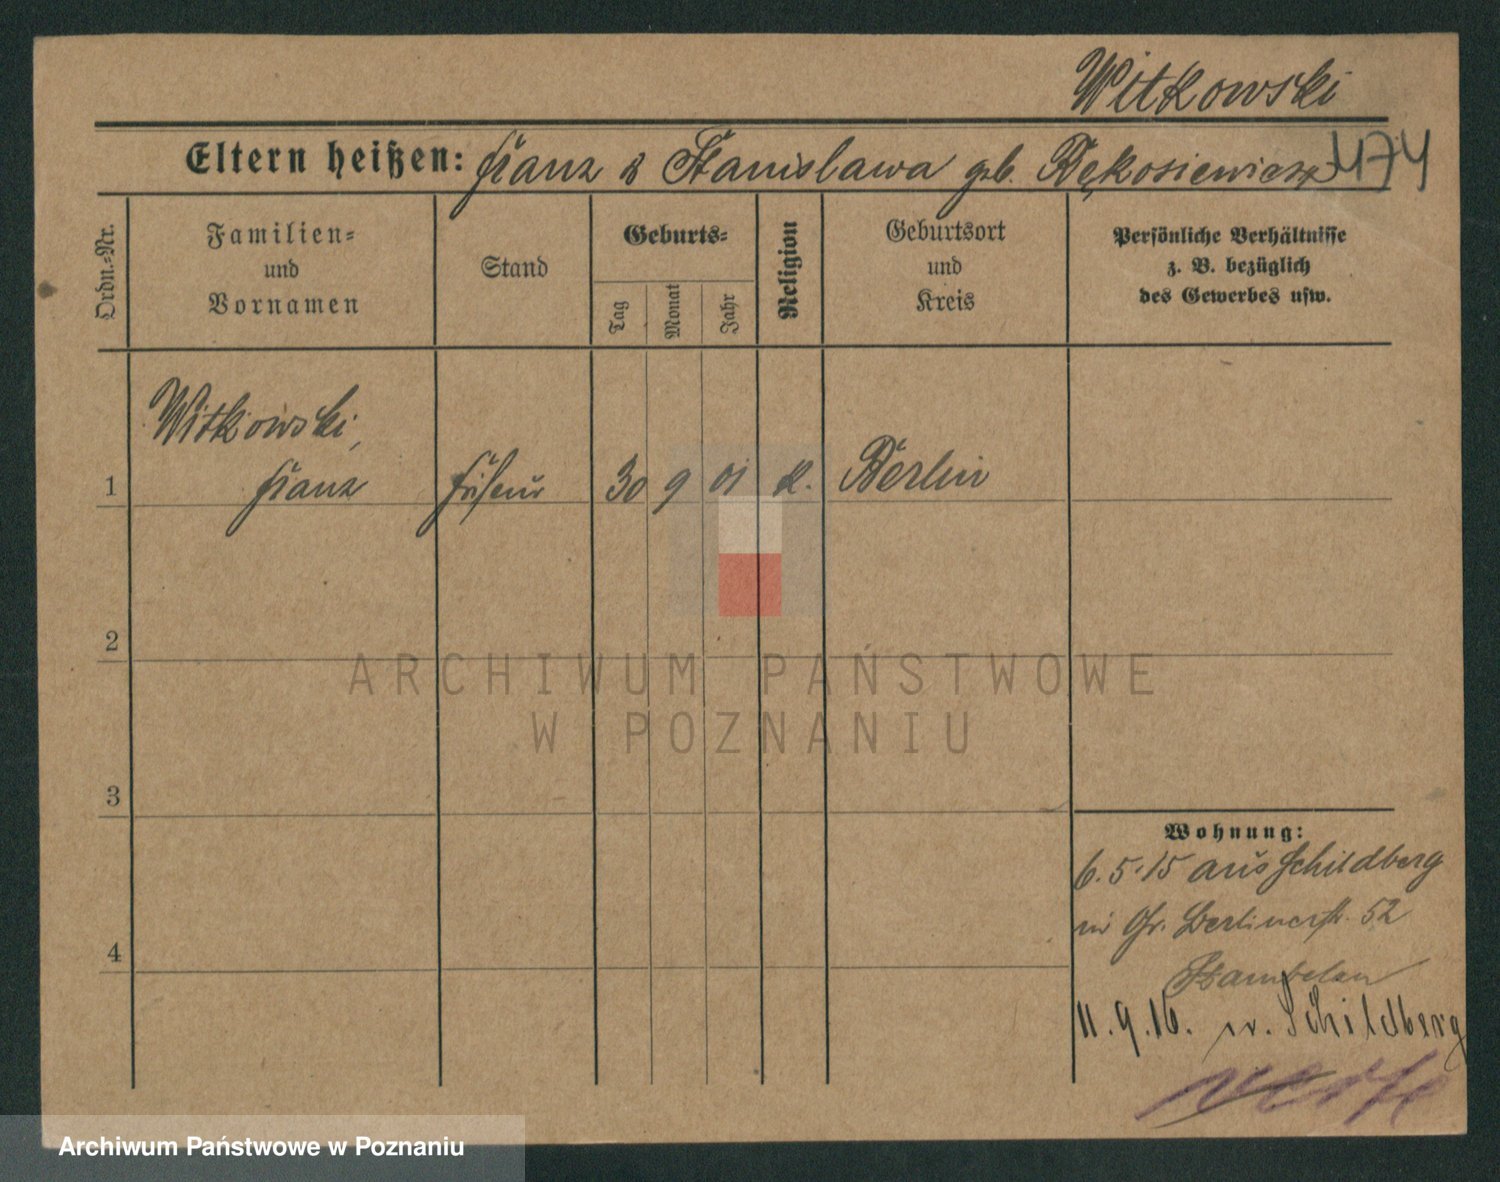 Witkowski
Eltern heißen: Franz & Stanislawa geb. Bękosiewicz 474
Ordn.-Nr.
Familien-
und
Vornamen
Stand
Geburts-
Tag
Monat
Jahr
Religion
Geburtsort
und
Kreis
Persönliche Verhältnisse
z. B. bezüglich
des Gewerbes usw.
Witkowski,
1 Franz Friseur 30 9 01 k. Berlin
2
3
4
Wohnung:
6.5.15 aus Schildberg
in Gr. Berlinerstr. 52
11.9.16. n. Schildberg
ARCHIWUM PAŃSTWOWE
W POZNANIU
Archiwum Państwowe w Poznaniu